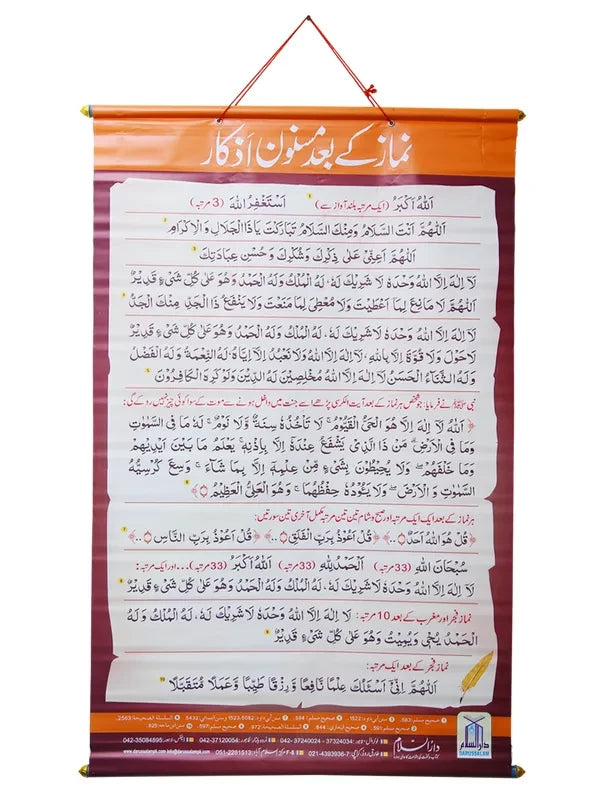 نماز کے بعد مسنون اَذکار
اَللهُ اَكْبَرُ (ایک مرتبہ بلند آواز سے) ¹ اَسْتَغْفِرُ اللهَ (3 مرتبہ)
اَللّٰهُمَّ اَنْتَ السَّلَامُ وَمِنْكَ السَّلَامُ تَبَارَكْتَ يَاذَا الْجَلَالِ وَالْاِكْرَامِ ²
اَللّٰهُمَّ اَعِنِّيْ عَلٰى ذِكْرِكَ وَشُكْرِكَ وَحُسْنِ عِبَادَتِكَ ³
لَا اِلٰهَ اِلَّا اللهُ وَحْدَهٗ لَا شَرِيْكَ لَهٗ، لَهُ الْمُلْكُ وَلَهُ الْحَمْدُ وَهُوَ عَلٰى كُلِّ شَيْءٍ قَدِيْرٌ
اَللّٰهُمَّ لَا مَانِعَ لِمَا اَعْطَيْتَ وَلَا مُعْطِيَ لِمَا مَنَعْتَ وَلَا يَنْفَعُ ذَا الْجَدِّ مِنْكَ الْجَدُّ
لَا اِلٰهَ اِلَّا اللهُ وَحْدَهٗ لَا شَرِيْكَ لَهٗ، لَهُ الْمُلْكُ وَلَهُ الْحَمْدُ وَهُوَ عَلٰى كُلِّ شَيْءٍ قَدِيْرٌ
لَا حَوْلَ وَلَا قُوَّةَ اِلَّا بِاللهِ، لَا اِلٰهَ اِلَّا اللهُ وَلَا نَعْبُدُ اِلَّا اِيَّاهُ، لَهُ النِّعْمَةُ وَلَهُ الْفَضْلُ
وَلَهُ الثَّنَاءُ الْحَسَنُ لَا اِلٰهَ اِلَّا اللهُ مُخْلِصِيْنَ لَهُ الدِّيْنَ وَلَوْ كَرِهَ الْكَافِرُوْنَ
نبی ﷺ نے فرمایا: جو شخص ہر نماز کے بعد آیت الکرسی پڑھے اسے جنت میں داخل ہونے سے موت کے سوا کوئی چیز نہیں روکے گی:
﴿ اَللهُ لَا اِلٰهَ اِلَّا هُوَ الْحَيُّ الْقَيُّوْمُ ۚ لَا تَاْخُذُهٗ سِنَةٌ وَّلَا نَوْمٌ ۚ لَهٗ مَا فِي السَّمٰوٰتِ
وَمَا فِي الْاَرْضِ ۗ مَنْ ذَا الَّذِيْ يَشْفَعُ عِنْدَهٗ اِلَّا بِاِذْنِهٖ ۚ يَعْلَمُ مَا بَيْنَ اَيْدِيْهِمْ
وَمَا خَلْفَهُمْ ۚ وَلَا يُحِيْطُوْنَ بِشَيْءٍ مِّنْ عِلْمِهٖ اِلَّا بِمَا شَاءَ ۚ وَسِعَ كُرْسِيُّهُ
السَّمٰوٰتِ وَالْاَرْضَ ۚ وَلَا يَـُٔوْدُهٗ حِفْظُهُمَا ۚ وَهُوَ الْعَلِيُّ الْعَظِيْمُ ﴾
ہر نماز کے بعد ایک ایک مرتبہ اور صبح و شام تین تین مرتبہ مکمل آخری تین سورتیں:
﴿ قُلْ هُوَ اللهُ اَحَدٌ ...﴾ ﴿ قُلْ اَعُوْذُ بِرَبِّ الْفَلَقِ ...﴾ ﴿ قُلْ اَعُوْذُ بِرَبِّ النَّاسِ ...﴾
سُبْحَانَ اللهِ (33 مرتبہ) اَلْحَمْدُ لِلّٰهِ (33 مرتبہ) اَللهُ اَكْبَرُ (33 مرتبہ) ... اور ایک مرتبہ:
لَا اِلٰهَ اِلَّا اللهُ وَحْدَهٗ لَا شَرِيْكَ لَهٗ، لَهُ الْمُلْكُ وَلَهُ الْحَمْدُ وَهُوَ عَلٰى كُلِّ شَيْءٍ قَدِيْرٌ
نماز فجر اور مغرب کے بعد 10 مرتبہ: لَا اِلٰهَ اِلَّا اللهُ وَحْدَهٗ لَا شَرِيْكَ لَهٗ، لَهُ الْمُلْكُ وَلَهُ
الْحَمْدُ يُحْيِيْ وَيُمِيْتُ وَهُوَ عَلٰى كُلِّ شَيْءٍ قَدِيْرٌ
نماز فجر کے بعد ایک مرتبہ:
اَللّٰهُمَّ اِنِّيْ اَسْئَلُكَ عِلْمًا نَافِعًا وَّرِزْقًا طَيِّبًا وَّعَمَلًا مُّتَقَبَّلًا ¹⁰
دارالسلام
DARUSSALAM
042-37120054 042-35084895
042-37324034 - 37240024
051-2281513 021-4393936-7
www.darussalampk.com info@darussalampk.com